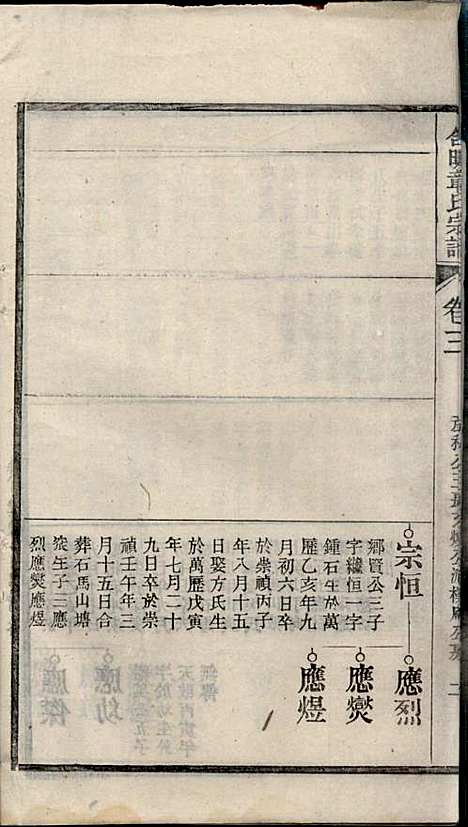 章氏宗譜
卷三
宗恒
鄉賢公三子
字繼恒一字
鍾石生於萬
歷乙亥年九
月初六日卒
於崇禎丙子
年八月十五
日娶方氏生
於萬歷戊寅
年七月二十
九日卒於崇
禎壬午年三
月十五日合
葬石馬山塘
塋生子三應
烈應爕應煜
應烈
應爕
應煜